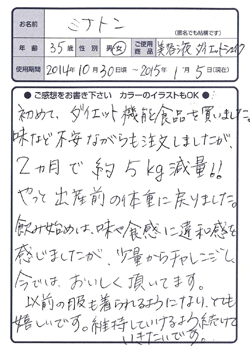 お名前 ミナトン
(匿名でも結構です)
年齢 35歳 性別 男・女 ご使用商品 美容液ダイエットシェイク
使用期間 2014年10月30日頃〜2015年1月5日(現在)
●ご感想をお書き下さい カラーのイラストもOK●
初めて、ダイエット機能食品を買いました。
味など不安ながらも注文しましたが、
2カ月で約5kg減量!!
やっと出産前の体重に戻りました。
飲み始めは、味や食感に違和感を
感じましたが、少量からチャレンジし、
今では、おいしく頂いてます。
以前の服も着られるようになり、とても
嬉しいです。維持していけるよう続けて
いきたいです。